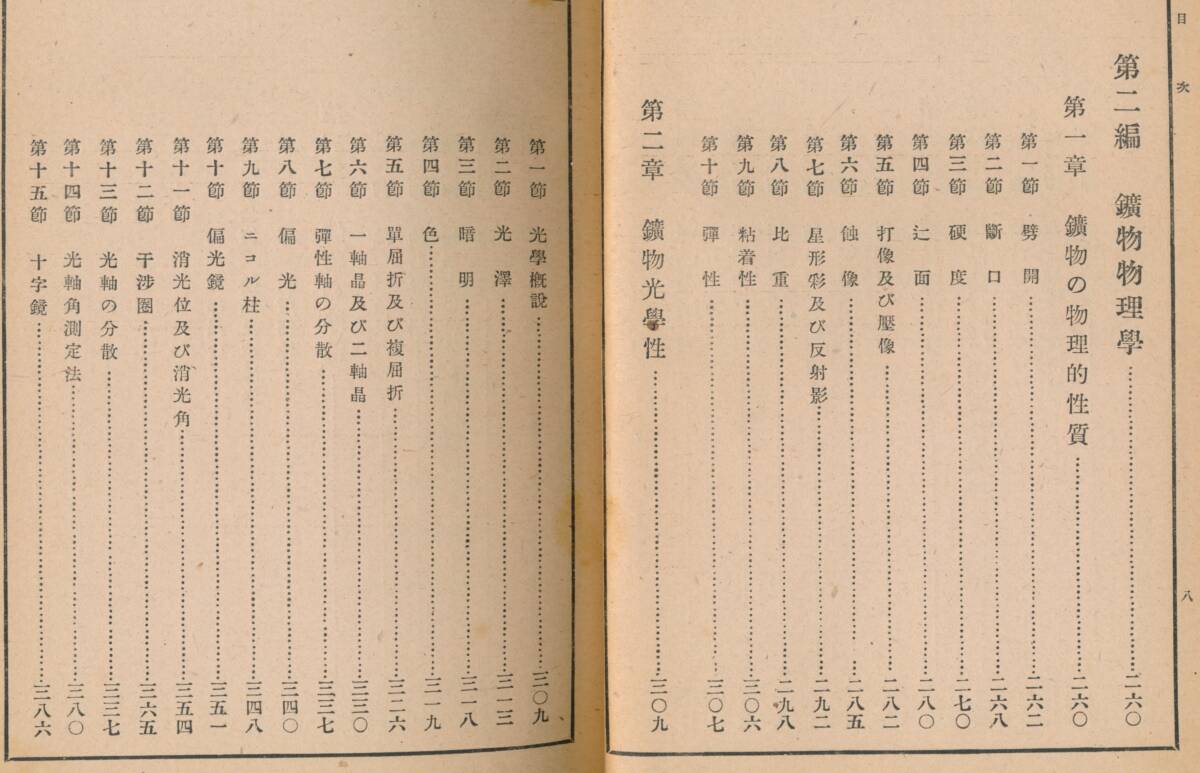 目次　八
第二編　鑛物物理學……二六〇
第一章　鑛物の物理的性質……二六〇
第一節　劈開……二六二
第二節　斷口……二六八
第三節　硬度……二七〇
第四節　辷面……二八〇
第五節　打像及び壓像……二八二
第六節　蝕像……二八五
第七節　星形彩及び反射影……二九二
第八節　比重……二九八
第九節　粘着性……三〇六
第十節　彈性……三〇七
第二章　鑛物光學性……三〇九
第一節　光學概說……三〇九
第二節　光澤……三一三
第三節　暗明……三一八
第四節　色……三一九
第五節　單屈折及び複屈折……三二六
第六節　一軸晶及び二軸晶……三三〇
第七節　彈性軸の分散……三三七
第八節　偏光……三四〇
第九節　ニコル柱……三四八
第十節　偏光鏡……三五一
第十一節　消光位及び消光角……三五四
第十二節　干涉圈……三六五
第十三節　光軸の分散……三三七
第十四節　光軸角測定法……三八〇
第十五節　十字鏡……三八六